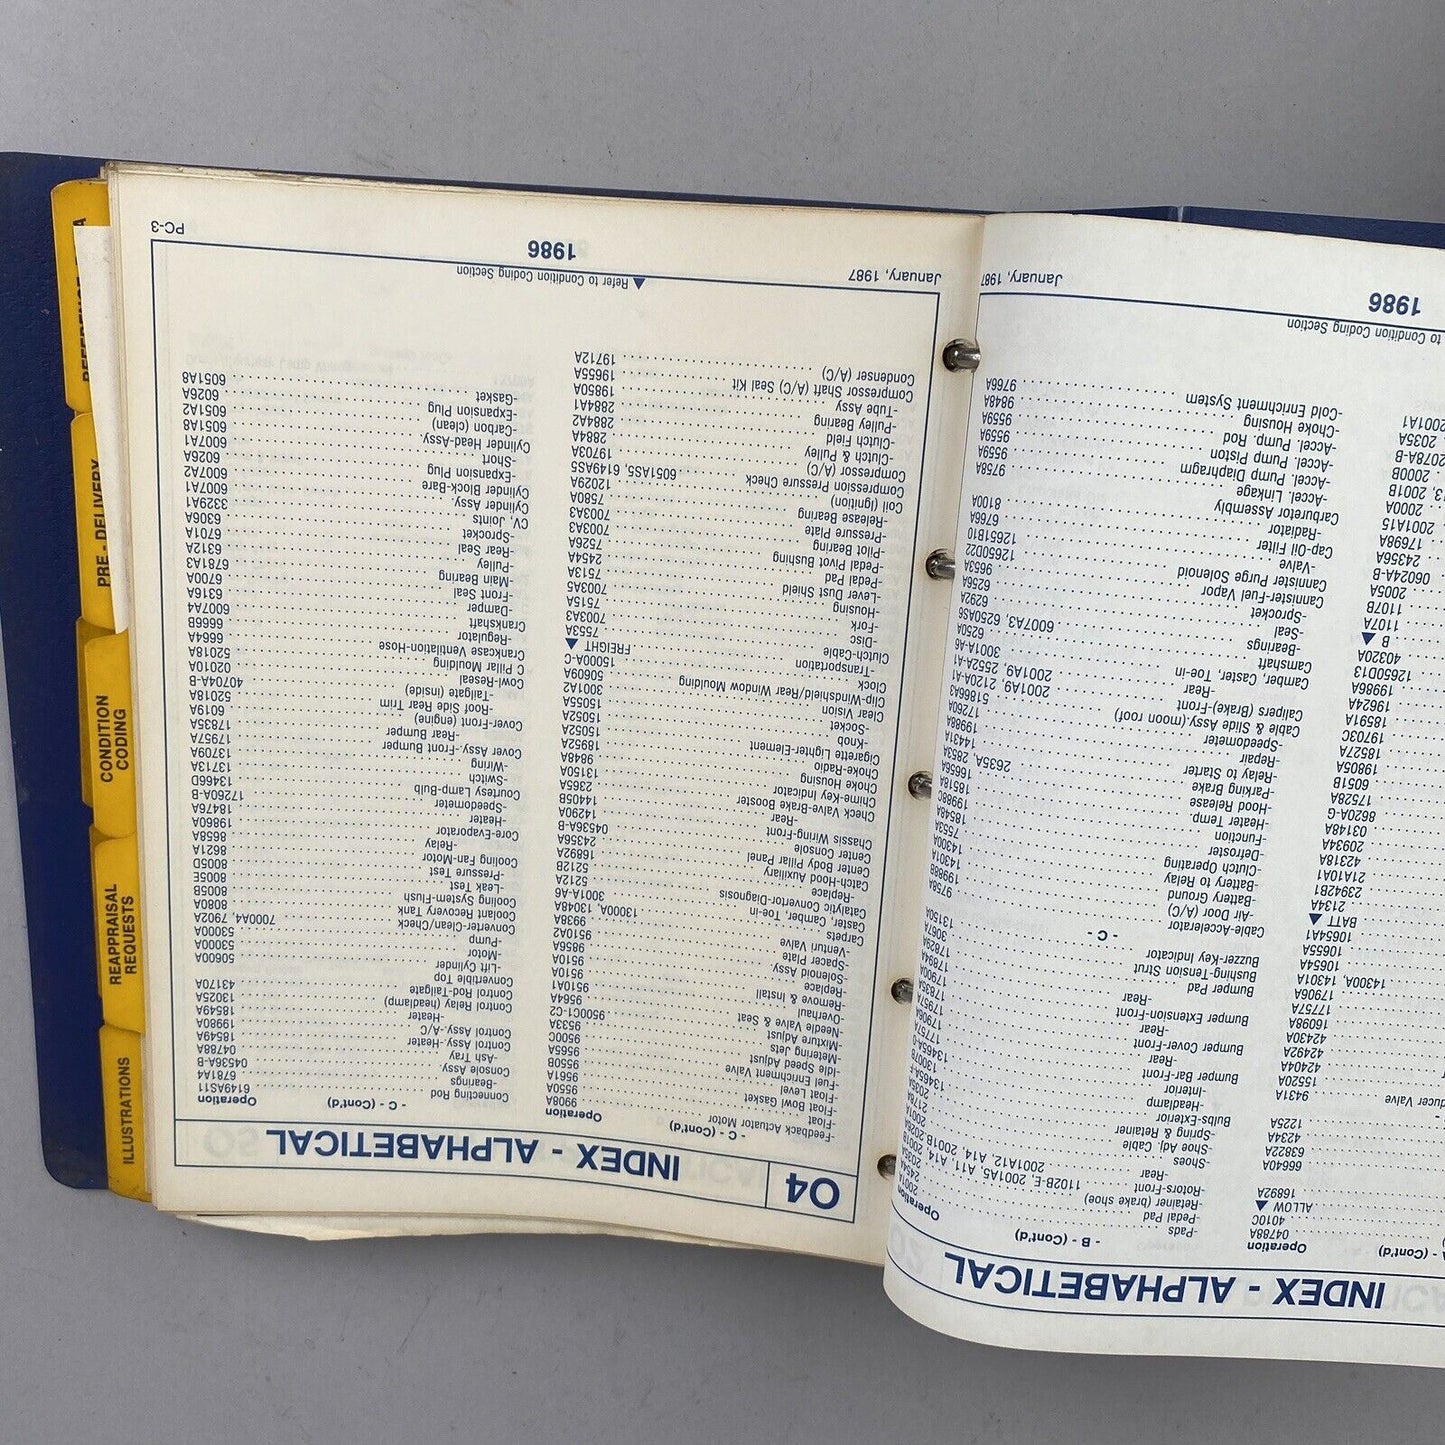 INDEX - ALPHABETICAL
- B - (Cont'd) Operation
-Pads 2001A
-Pedal Pad 2454A
-Retainer (brake shoe) 2035A
-Rotors-Front 1102B-E, 2001A5, A11, A14, 2001B
-Rear 2001A12, A14, 2001B
-Shoes
-Shoe Adj. Cable
-Spring & Retainer
Bulbs-Exterior 13465A-F
-Headlamp 13007B
-Interior 13465A-G
Bumper Bar-Front 17757A
-Rear 17906A
Bumper Cover-Front 17957A
-Rear 17835A
Bumper Extension-Front 17900A
-Rear 17894A
Bumper Pad 17829A
Bushing-Tension Strut 3067A
Buzzer-Key Indicator 13150A
- C -
Cable-Accelerator 9758A
-Air Door (A/C) 19988B
-Battery Ground 14301A
-Battery to Relay 14300A
-Clutch Operating 7553A
-Defroster 18548A
-Function 19988C
-Heater Temp. 18518A
-Hood Release 16656A
-Parking Brake 2635A, 2853A
-Relay to Starter 14431A
-Repair 19988A
-Speedometer 17260A
Cable & Slide Assy.(moon roof) 51866A3
Calipers (Brake)-Front 2001A9, 2120A-A1
-Rear 2001A9, 2552A-A1
Camber, Caster, Toe-in 3001A-A6
Camshaft 6250A
-Bearings 6007A3, 6250AS6
-Seal 6292A
-Sprocket 6256A
Cannister-Fuel Vapor 9653A
Cannister Purge Solenoid 12650D22
-Valve 12651B10
Cap-Oil Filter 6766A
-Radiator 8100A
Carburetor Assembly
-Accel. Linkage 9758A
-Accel. Pump Diaphragm 9559A
-Accel. Pump Piston 9559A
-Accel. Pump. Rod 9559A
-Choke Housing 9848A
-Cold Enrichment System 9766A
to Condition Coding Section
1986
January, 1987
(Cont'd) Operation
04788A
4010C
ALLOW ▲
16892A
66640A
63822A
4234A
1225A
ducer Valve 9431A
15520A
42404A
42492A
42430A
16098A
17757A
17906A
14300A, 14301A
10654A
10655A
10654A1
BATT ▲
2134A
23942B1
21A10A1
42318A
20934A
03148A
8620A-G
17528A
6051B
19805A
18527A
19703C
18591A
19624A
19986A
12650D13
40320A
B ▲
1107A
1107B
2005A
06024A-B
24356A
17698A
2001A15
2000A
3, 2001B
2000B
2078A-B
2035A
2001A1
04 INDEX - ALPHABETICAL
- C - (Cont'd) Operation
-Feedback Actuator Motor 9908A
-Float 9550A
-Float Bowl Gasket 9561A
-Float Level 9550B
-Fuel Enrichment Valve 9565A
-Idle Speed Adjust 9500C
-Metering Jets 9533A
-Mixture Adjust 9500C1-C2
-Needle Valve & Seat 9564A
-Overhaul 9510A1
-Remove & Install 9510A
-Replace 9510A
-Solenoid Assy. 9856A
-Spacer Plate 9510A2
-Venturi Valve 9936A
Carpets 13000A, 13048A
Caster, Camber, Toe-in 3001A-A6
Catalytic Converter-Diagnosis 5212A
-Replace 5212B
Catch-Hood Auxiliary 16892A
Center Body Pillar Panel 24356A
Center Console 04536A-B
Chassis Wiring-Front 14290A
-Rear 14405B
Check Valve-Brake Booster 2365A
Chime-Key Indicator 13150A
Choke Housing 9848A
Choke-Radio 18952A
Cigarette Lighter-Element 15052A
-Knob 15052A
-Socket 15055A
Clear Vision 3001A2
Clip-Windshield/Rear Window Moulding 50609A
Clock 15000A-C
-Transportation FREIGHT ▲
Clutch-Cable 7553A
-Disc 7003A3
-Fork 7515A
-Housing 7003A5
-Lever Dust Shield 7513A
-Pedal Pad 2454A
-Pedal Pivot Bushing 7526A
-Pilot Bearing 7003A3
-Pressure Plate 7003A3
-Release Bearing 7580A
Coil (Ignition) 12029A
Compression Pressure Check 6051AS5, 6149AS5
Compressor (A/C) 19703A
-Clutch & Pulley 2884A
-Clutch Field 2884A2
-Pulley Bearing 2884A1
-Tube Assy 19850A
Compressor Shaft (A/C) Seal Kit 19655A
Condenser (A/C) 19712A
- C - (Cont'd) Operation
Connecting Rod 6149AS11
-Bearings 6781A4
Console Assy 04536A-B
-Ash Tray 04788A
Control Assy.-Heater 18549A
Control Assy-A/C 19980A
-Heater 18549A
Control Relay (headlamp) 13025A
Control Rod-Tailgate 43170A
Convertible Top
-Lift Cylinder 50600A
-Motor 53000A
-Pump 53000A
Converter-Clean/Check 7000A4, 7902A
Coolant Recovery Tank 8080A
Cooling System-Flush 8005B
-Leak Test 8005E
-Pressure Test 8005D
Cooling Fan-Motor 8621A
-Relay 8658A
Core-Evaporator 19860A
-Heater 18476A
-Speedometer 17260A-B
Courtesy Lamp-Bulb 13466D
-Switch 13713A
-Wiring 13709A
Cover Assy.-Front Bumper 17957A
-Rear Bumper 17835A
Cover-Front (engine) 6019A
-Roof Side Rear Trim 52018A
-Tailgate (inside) 40704A-B
Cowl-Reseal 02010A
C Pillar Moulding 52018A
Crankcase Ventilation-Hose 6664A
-Regulator 6666B
Crankshaft 6007A4
-Damper 6316A
-Front Seal 6700A
-Main Bearing 6781A3
-Pulley 6312A
-Rear Seal 6701A
-Sprocket 6306A
CV. Joints 3329A1
Cylinder Assy. 6007A1
Cylinder Block-Bare 6007A2
-Expansion Plug 6026A
-Short 6007A1
Cylinder Head-Assy. 6051A8
-Carbon (clean) 6051A2
-Expansion Plug 6026A
-Gasket 6051A8
▲ Refer to Condition Coding Section
January, 1987
1986
PC-3
PRE - DELIVERY
CONDITION
CODING
REAPPRAISAL
REQUESTS
ILLUSTRATIONS